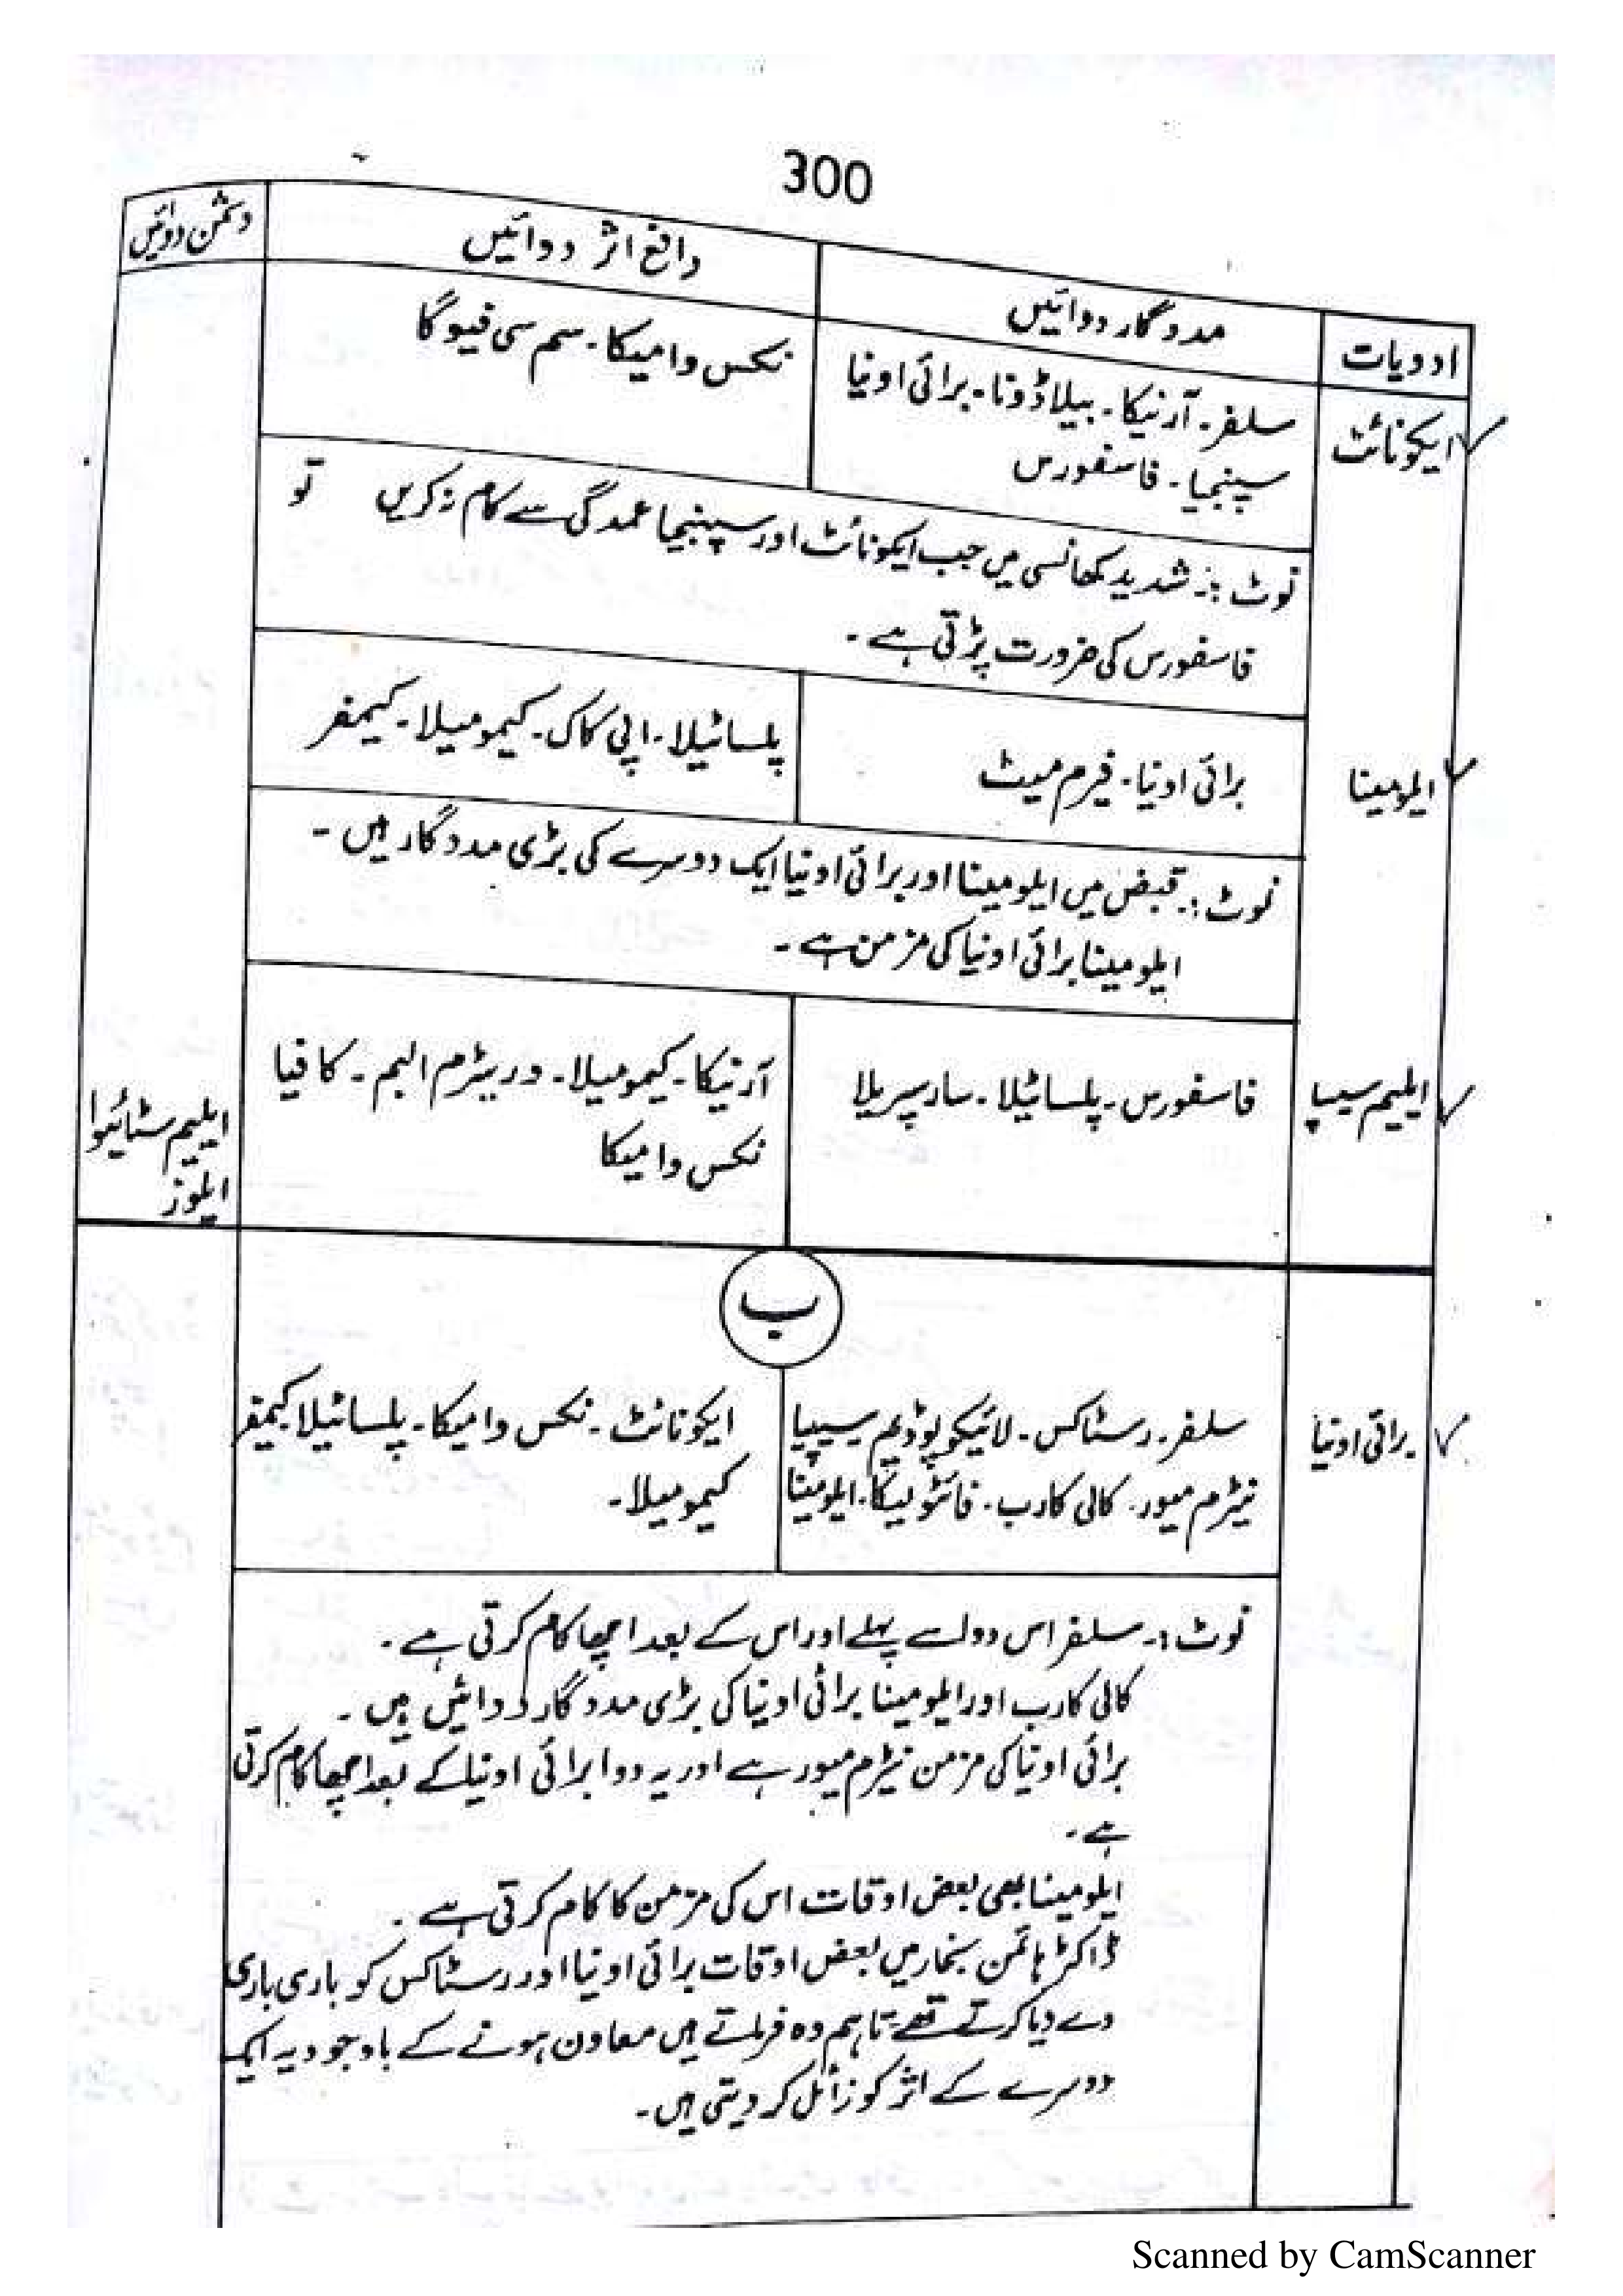 300
ادویات
مددگار دوائیں
دافع اثر دوائیں
دشمن دوائیں
ایکونائٹ
سلفر۔ آرنیکا۔ بیلاڈونا۔ برائی اونیا
سپنجیا۔ فاسفورس
نکس وامیکا۔ سم سی فیوگا
نوٹ :۔ شدید کھانسی میں جب ایکونائٹ اور سپنجیا عمدگی سے کام نہ کریں تو
فاسفورس کی ضرورت پڑتی ہے۔
ایلومینا
برائی اونیا۔ فیرم میٹ
پلساٹیلا۔ اپی کاک۔ کیمومیلا۔ کیمفر
نوٹ :۔ قبض میں ایلومینا اور برائی اونیا ایک دوسرے کی بڑی مددگار ہیں۔
ایلومینا برائی اونیا کی مزمن ہے۔
ایلیم سیپا
فاسفورس۔ پلساٹیلا۔ سارسپریلا
آرنیکا۔ کیمومیلا۔ وریٹرم البم۔ کافیا
نکس وامیکا
ایلیم سٹائیوا
ایلوز
ب
برائی اونیا
سلفر۔ رسٹاکس۔ لائیکوپوڈیم سیپیا
نیٹرم میور۔ کالی کارب۔ فائٹولیکا۔ ایلومینا
ایکونائٹ۔ نکس وامیکا۔ پلساٹیلا کیمفر
کیمومیلا۔
نوٹ :۔ سلفر اس دوا سے پہلے اور اس کے بعد اچھا کام کرتی ہے۔
کالی کارب اور ایلومینا برائی اونیا کی بڑی مددگار دوائیں ہیں۔
برائی اونیا کی مزمن نیٹرم میور ہے اور یہ دوا برائی اونیا کے بعد اچھا کام کرتی
ہے۔
ایلومینا بھی بعض اوقات اس کی مزمن کا کام کرتی ہے۔
ڈاکٹر ہانمن بخار میں بعض اوقات برائی اونیا اور رسٹاکس کو باری باری
دے دیا کرتے تھے تاہم وہ فرماتے ہیں معاون ہونے کے باوجود یہ ایک
دوسرے کے اثر کو زائل کر دیتی ہیں۔
Scanned by CamScanner